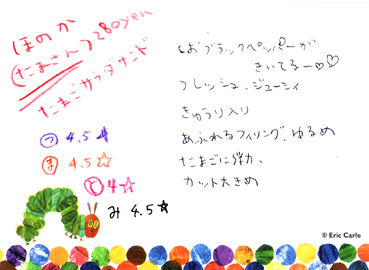 ほのか
(たまさん) 280yen
たまごサラダサンド
つ 4.5☆
ま 4.5☆
と 4☆
み 4.5☆
しおブラックペッパーが
きいてるー♡♡
フレッシュ、ジューシィ
きゅうり入り
あふれるフィリング、ゆるめ
たまごに弾力、
カット大きめ
© Eric Carle